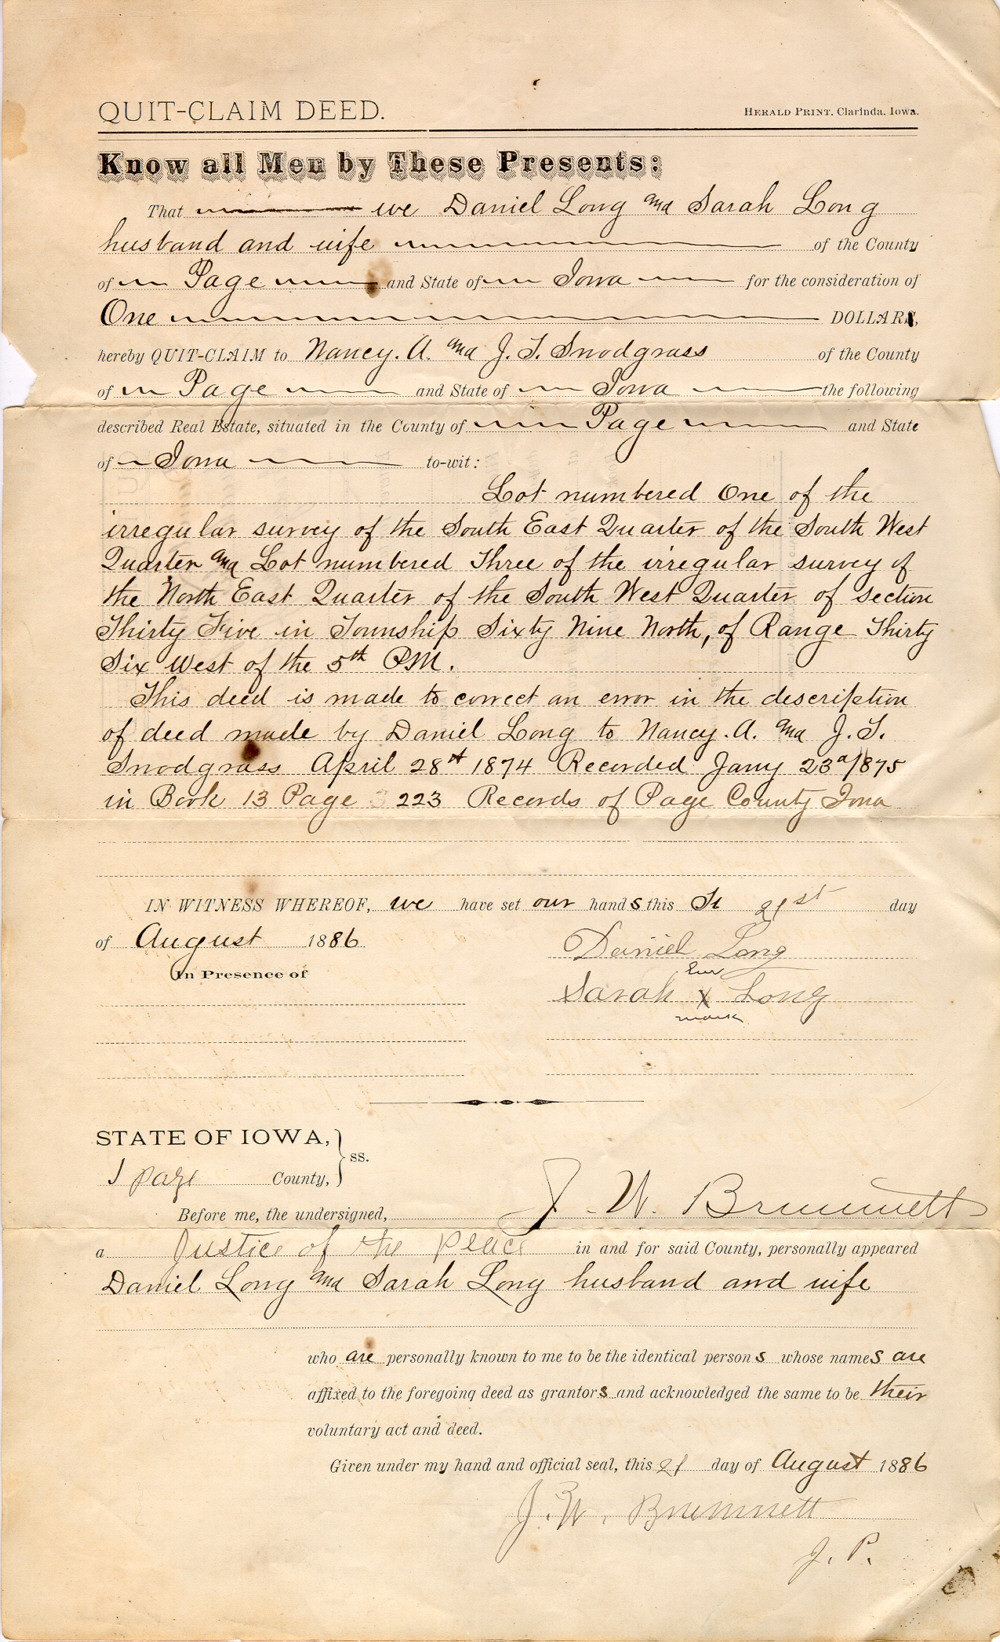 QUIT-CLAIM DEED. HERALD PRINT, Clarinda, Iowa.
Know all Men by These Presents:
That we Daniel Long and Sarah Long
husband and wife of the County
of Page and State of Iowa for the consideration of
One DOLLARS,
hereby QUIT-CLAIM to Nancy. A. and J. T. Snodgrass of the County
of Page and State of Iowa the following
described Real Estate, situated in the County of Page and State
of Iowa to-wit:
Lot numbered One of the
irregular survey of the South East Quarter of the South West
Quarter and Lot numbered Three of the irregular survey of
the North East Quarter of the South West Quarter of section
Thirty Five in Township Sixty Nine North, of Range Thirty
Six West of the 5th P.M.
This deed is made to correct an error in the description
of deed made by Daniel Long to Nancy. A. and J. T.
Snodgrass April 28th 1874 Recorded Jany 23d 1875
in Book 13 Page 223 Records of Page County Iowa
IN WITNESS WHEREOF, we have set our hands this 21st day
of August 1886
In Presence of
Daniel Long
her
Sarah X Long
mark
STATE OF IOWA,
ss.
page County,
Before me, the undersigned, J. W. Brummett
a Justice of the peace in and for said County, personally appeared
Daniel Long and Sarah Long husband and wife
who are personally known to me to be the identical persons whose names are
affixed to the foregoing deed as grantors and acknowledged the same to be their
voluntary act and deed.
Given under my hand and official seal, this 21 day of August 1886
J. W. Brummett
J. P.